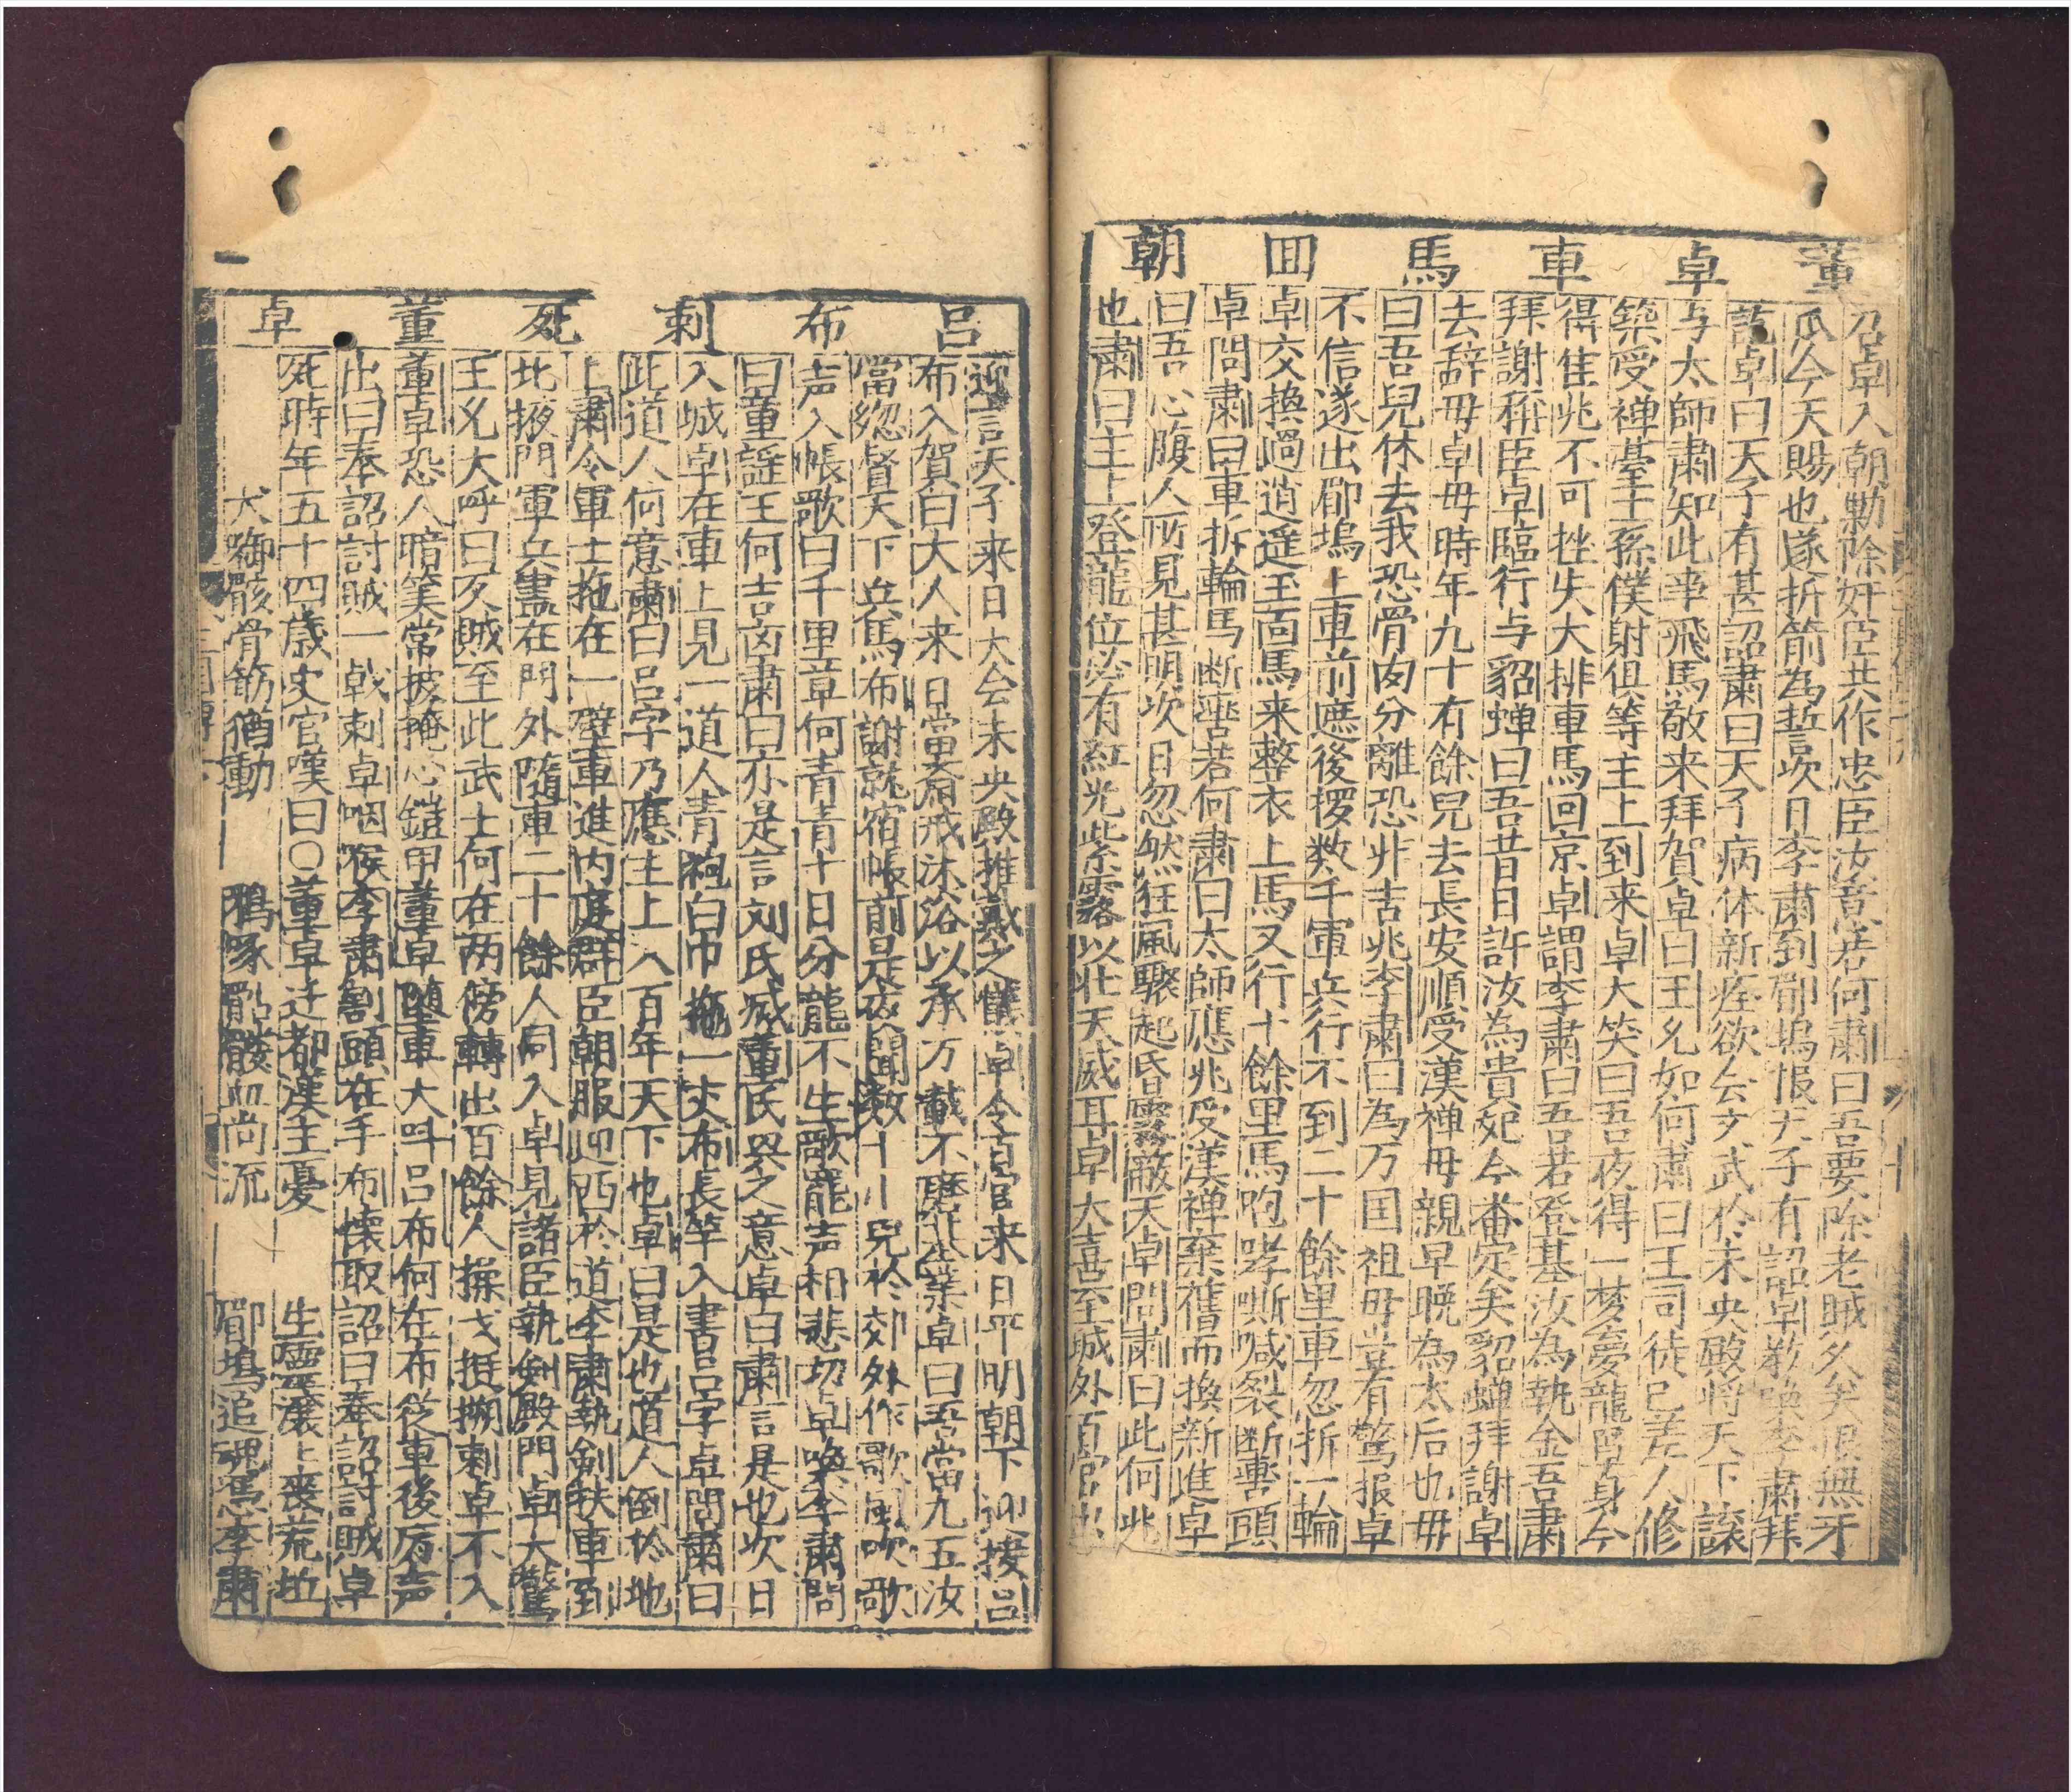 董卓車馬囬朝
召卓入朝勦除奸臣共作忠臣汝意若何肅曰吾要除老賊久矣恨無牙
瓜今天賜也遂折箭為誓次日李肅到郿塢報天子有詔卓教喚李肅拜
訖卓曰天子有甚詔肅曰天子病体新痊欲会文武於未央殿将天下譲
与太師肅知此事飛馬敬来拜賀卓曰王允如何肅曰王司徒已差人修
築受禅臺士孫僕射俱等主上到来卓大笑曰吾夜得一梦夢龍罩身今
得隹兆不可挫失大排車馬回京卓謂李肅曰吾若登基汝為執金吾肅
拜謝称臣卓臨行与貂蝉曰吾昔日許汝為貴妃今番定矣貂蝉拜謝卓
去辞毋卓毋時年九十有餘兒去長安順受漢禅毋親早晚為太后也毋
曰吾兒休去我恐骨肉分離恐非吉兆李肅曰為万国祖毋豈有驚报卓
不信遂出郿塢上車前遮後擁数千軍兵行不到二十餘里車忽折一輪
卓交換過逍遥玉面馬来整衣上馬又行十餘里馬咆哮嘶喊裂断轡頭
卓問肅曰車拆輪馬断轡若何肅曰太師應兆受漢禅棄舊而換新進卓
曰吾心腹人所見甚明次日忽然狂風驟起昏霧蔽天卓問肅曰此何兆
也肅曰主上登龍位必有紅光紫霧以壮天威耳卓大喜至城外百官出
吕布刺死董卓
迎言天子来日大会未央殿推戴之儀卓令百官来日平明朝下迎接吕
布入賀曰大人来日當斎戒沐浴以承万載不磨之業卓曰吾當九五汝
當緫督天下兵馬布謝就宿帳前是夜聞数十小兒於郊外作歌風吹歌
声入帳歌曰千里章何青青十日分龍不生歌罷声相悲切卓喚李肅問
曰童謡王何吉凶肅曰亦是言刘氏滅董氏興之意卓曰肅言是也次日
入城卓在車上見一道人青袍白巾拖一丈布長竿入書吕字卓問肅曰
此道人何意肅曰吕字乃應主上八百年天下也卓曰是也道人倒於地
上肅令軍士拖在一壁車進内庭群臣朝服迎迓於道李肅執劍扶車到
北掖門軍兵盡在門外随車二十餘人同入卓見諸臣執劍殿門卓大驚
王允大呼曰反賊至此武士何在两傍轉出百餘人操戈挺搠刺卓不入
董卓恐人暗筭常披掩心鎧甲董卓随車大呌吕布何在布從車後厉声
出曰奉詔討賊一戟刺卓咽喉李肅割頭在手布懷取詔曰奉詔討賊卓
死時年五十四歲史官嘆曰〇董卓迁都漢主憂 生靈滚上喪荒坵
犬啣骸骨筋猶動 鴉啄骷髏血尚流 郿塢追魂馮李肅